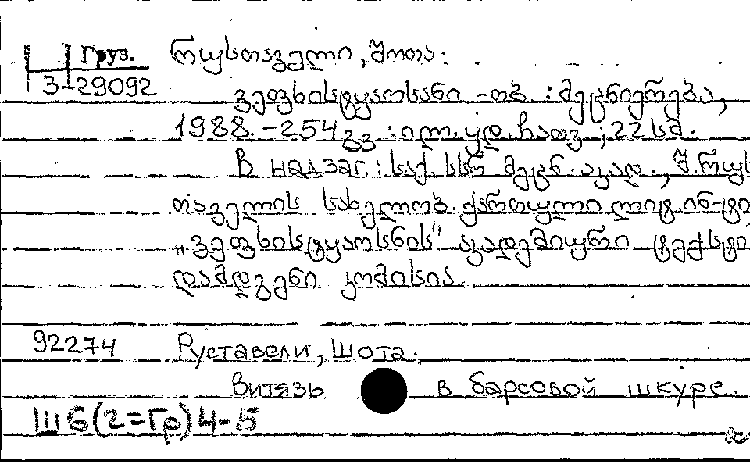 Груз. რუსთაველი, შოთა.
3-29092 ვეფხისტყაოსანი -თბ. : მეცნიერება,
1988.-254 გვ : ილ. ყდ. ჩასვ ; 22 სმ.
В надзаг. : საქ. სსრ მეცნ. აკად., შ. რუს
თაველის სახელობ. ქართული ლიტ. ინ-ტი,
„ვეფხისტყაოსნის" აკადემიური ტექსტი
დამდგენი კომისია.
92274 Руставели, Шота.
Витязь в барсовой шкуре.
Ш6(2=Гр)4-5